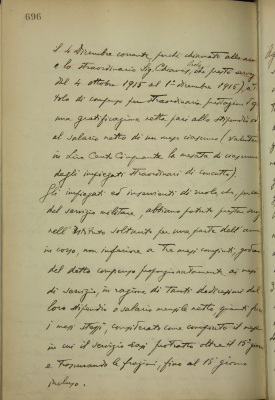 696
il 4 Dicembre corrente, perché chiamato alle armi
e lo straordinario Sig. Chiaves, che prestò servizio
dal 4 ottobre 1915 al 1º Dicembre 1915), a ti
tolo di compenso per straordinarie prestazioni
una gratificazione netta pari allo stipendio od
al salario netto di un mese ciascuno (valutata
in Lire Cento Cinquanta la mesata di ciascuno
degli impiegati straordinari di concetto).
Gli impiegati ed inservienti di ruolo che, a causa
del servizio militare, abbiano potuto prestare
nell'Istituto soltanto per una parte dell'anno
in corso, non inferiore a tre mesi compiuti, godranno
del detto compenso proporzionatamente ai mesi
di servizio, in ragione di tanti dodicesimi del
loro stipendio o salario mensile netto, quanti furono
i mesi stessi, considerato come compiuto il mese
in cui il servizio siasi protratto oltre il 15º giorno
e trascurando le frazioni, fino al 15º giorno
incluso.